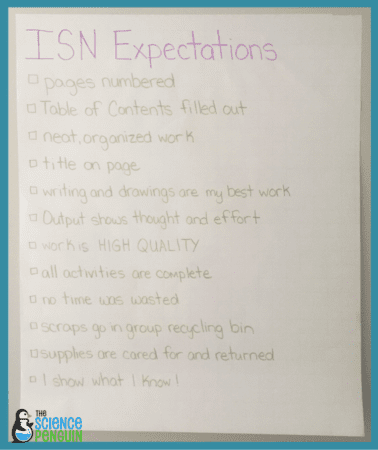 ISN Expectations
pages numbered
Table of Contents filled out
neat, organized work
title on page
writing and drawings are my best work
Output shows thought and effort
work is HIGH QUALITY
all activities are complete
no time was wasted
scraps go in group recycling bin
supplies are cared for and returned
I show what I know!
THE
SCIENCE
PENGUIN